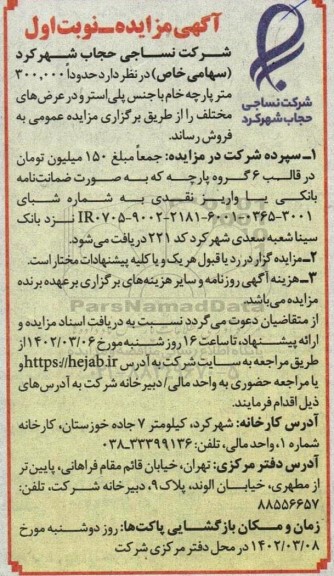 آگهی مزایده ـ نوبت اول
شرکت نساجی حجاب شهرکرد
شرکت نساجی
حجاب شهرکرد
(سهامی خاص) در نظر دارد حدوداً ۳۰۰,۰۰۰
متر پارچه خام با جنس پلی استر و در عرض های
مختلف را از طریق برگزاری مزایده عمومی به
فروش رساند.
۱ـ سپرده شرکت در مزایده: جمعاً مبلغ ۱۵۰ میلیون تومان
در قالب ۶ گروه پارچه که به صورت ضمانت نامه
بانکی یا واریز نقدی به شماره شبای
IR۰۷۰۵-۹۰۰۲-۲۱۸۱-۶۰۰۱-۰۳۶۵-۳۰۰۱ نزد بانک
سینا شعبه سعدی شهرکرد کد ۲۲۱ دریافت می شود.
۲ـ مزایده گزار در رد یا قبول هر یک و یا کلیه پیشنهادات مختار است.
۳ـ هزینه آگهی روزنامه و سایر هزینه های برگزاری بر عهده برنده
مزایده می باشد.
از متقاضیان دعوت می گردد نسبت به دریافت اسناد مزایده و
ارائه پیشنهاد، تا ساعت ۱۶ روز شنبه مورخ ۱۴۰۲/۰۳/۰۶ از
طریق مراجعه به سایت شرکت به آدرس https://hejab.ir و
یا مراجعه حضوری به واحد مالی/ دبیرخانه شرکت به آدرس های
ذیل اقدام فرمایند.
آدرس کارخانه: شهرکرد، کیلومتر ۷ جاده خوزستان، کارخانه
شماره ۱، واحد مالی، تلفن: ۳۳۳۹۹۱۳۶ـ۰۳۸
آدرس دفتر مرکزی: تهران، خیابان قائم مقام فراهانی، پایین تر
از مطهری، خیابان الوند، پلاک ۹، دبیرخانه شرکت، تلفن:
۸۸۵۵۶۶۵۷
زمان و مکان بازگشایی پاکت ها: روز دوشنبه مورخ
۱۴۰۲/۰۳/۰۸ در محل دفتر مرکزی شرکت
ParsNamadData